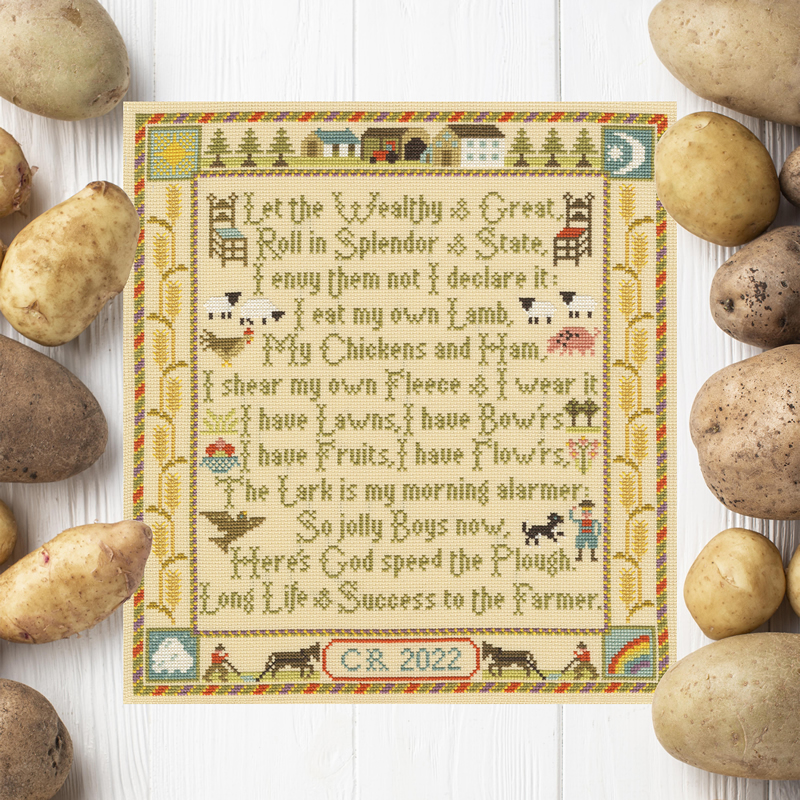 Let the Wealthy & Great,
Roll in Splendor & State,
I envy them not I declare it:
I eat my own Lamb,
My Chickens and Ham,
I shear my own Fleece & I wear it
I have Lawns, I have Bow'rs
I have Fruits, I have Flow'rs,
The Lark is my morning alarmer;
So jolly Boys now,
Here's God speed the Plough.
Long Life & Success to the Farmer.
CR 2022